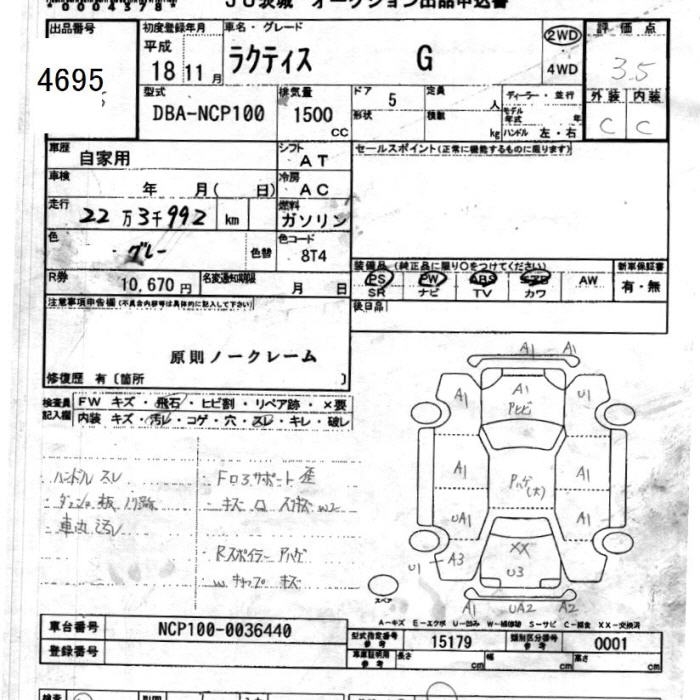 JU茨城 オークション出品申込書
出品番号
4695
初度登録年月
平成
18 11 月
車名・グレード
ラクティス G
2WD
4WD
評価点
3.5
外装 内装
C C
型式
DBA-NCP100
排気量
1500
cc
ドア
5
形状
定員
人
積数
kg
ディーラー・並行
モデル
年式 年
ハンドル 左・右
車歴
自家用
シフト
AT
セールスポイント(正常に機能するものに限ります)
車検
年 月( 日)
冷房
AC
走行
22万3千992 km
燃料
ガソリン
色
グレー
色替
色コード
8T4
装備品(純正品に限り○をつけてください)
新車保証書
PS PW ABS AW
SR ナビ TV カワ
有・無
R券
10,670円
名変通知期限
月 日
後日品
注意事項申告欄(不具合内容等は具体的に記入して下さい)
原則ノークレーム
修復歴 有〔箇所 〕
検査員
記入欄
FW キズ・飛石・ヒビ割・リペア跡・×要
内装 キズ・汚レ・コゲ・穴・スレ・キレ・破レ
・ハンドル スレ
・ダッシュ板
・車内 汚レ
・Fロアサポート 歪
・Rスポイラー アハゲ
・Wキャップ キズ
A1 A1
A1 A1 U1
A1 A1
UA1 A1
XX
U3
U1 A3
A1 UA2 A2
スペア
A-キズ E-エクボ U-凹み W-補修跡 S-サビ C-腐食 XX-交換済
車台番号
NCP100-0036440
型式指定番号
参考
15179
類別区分番号
参考
0001
登録番号
車庫証明用
参考
長さ cm
幅 cm
高さ cm